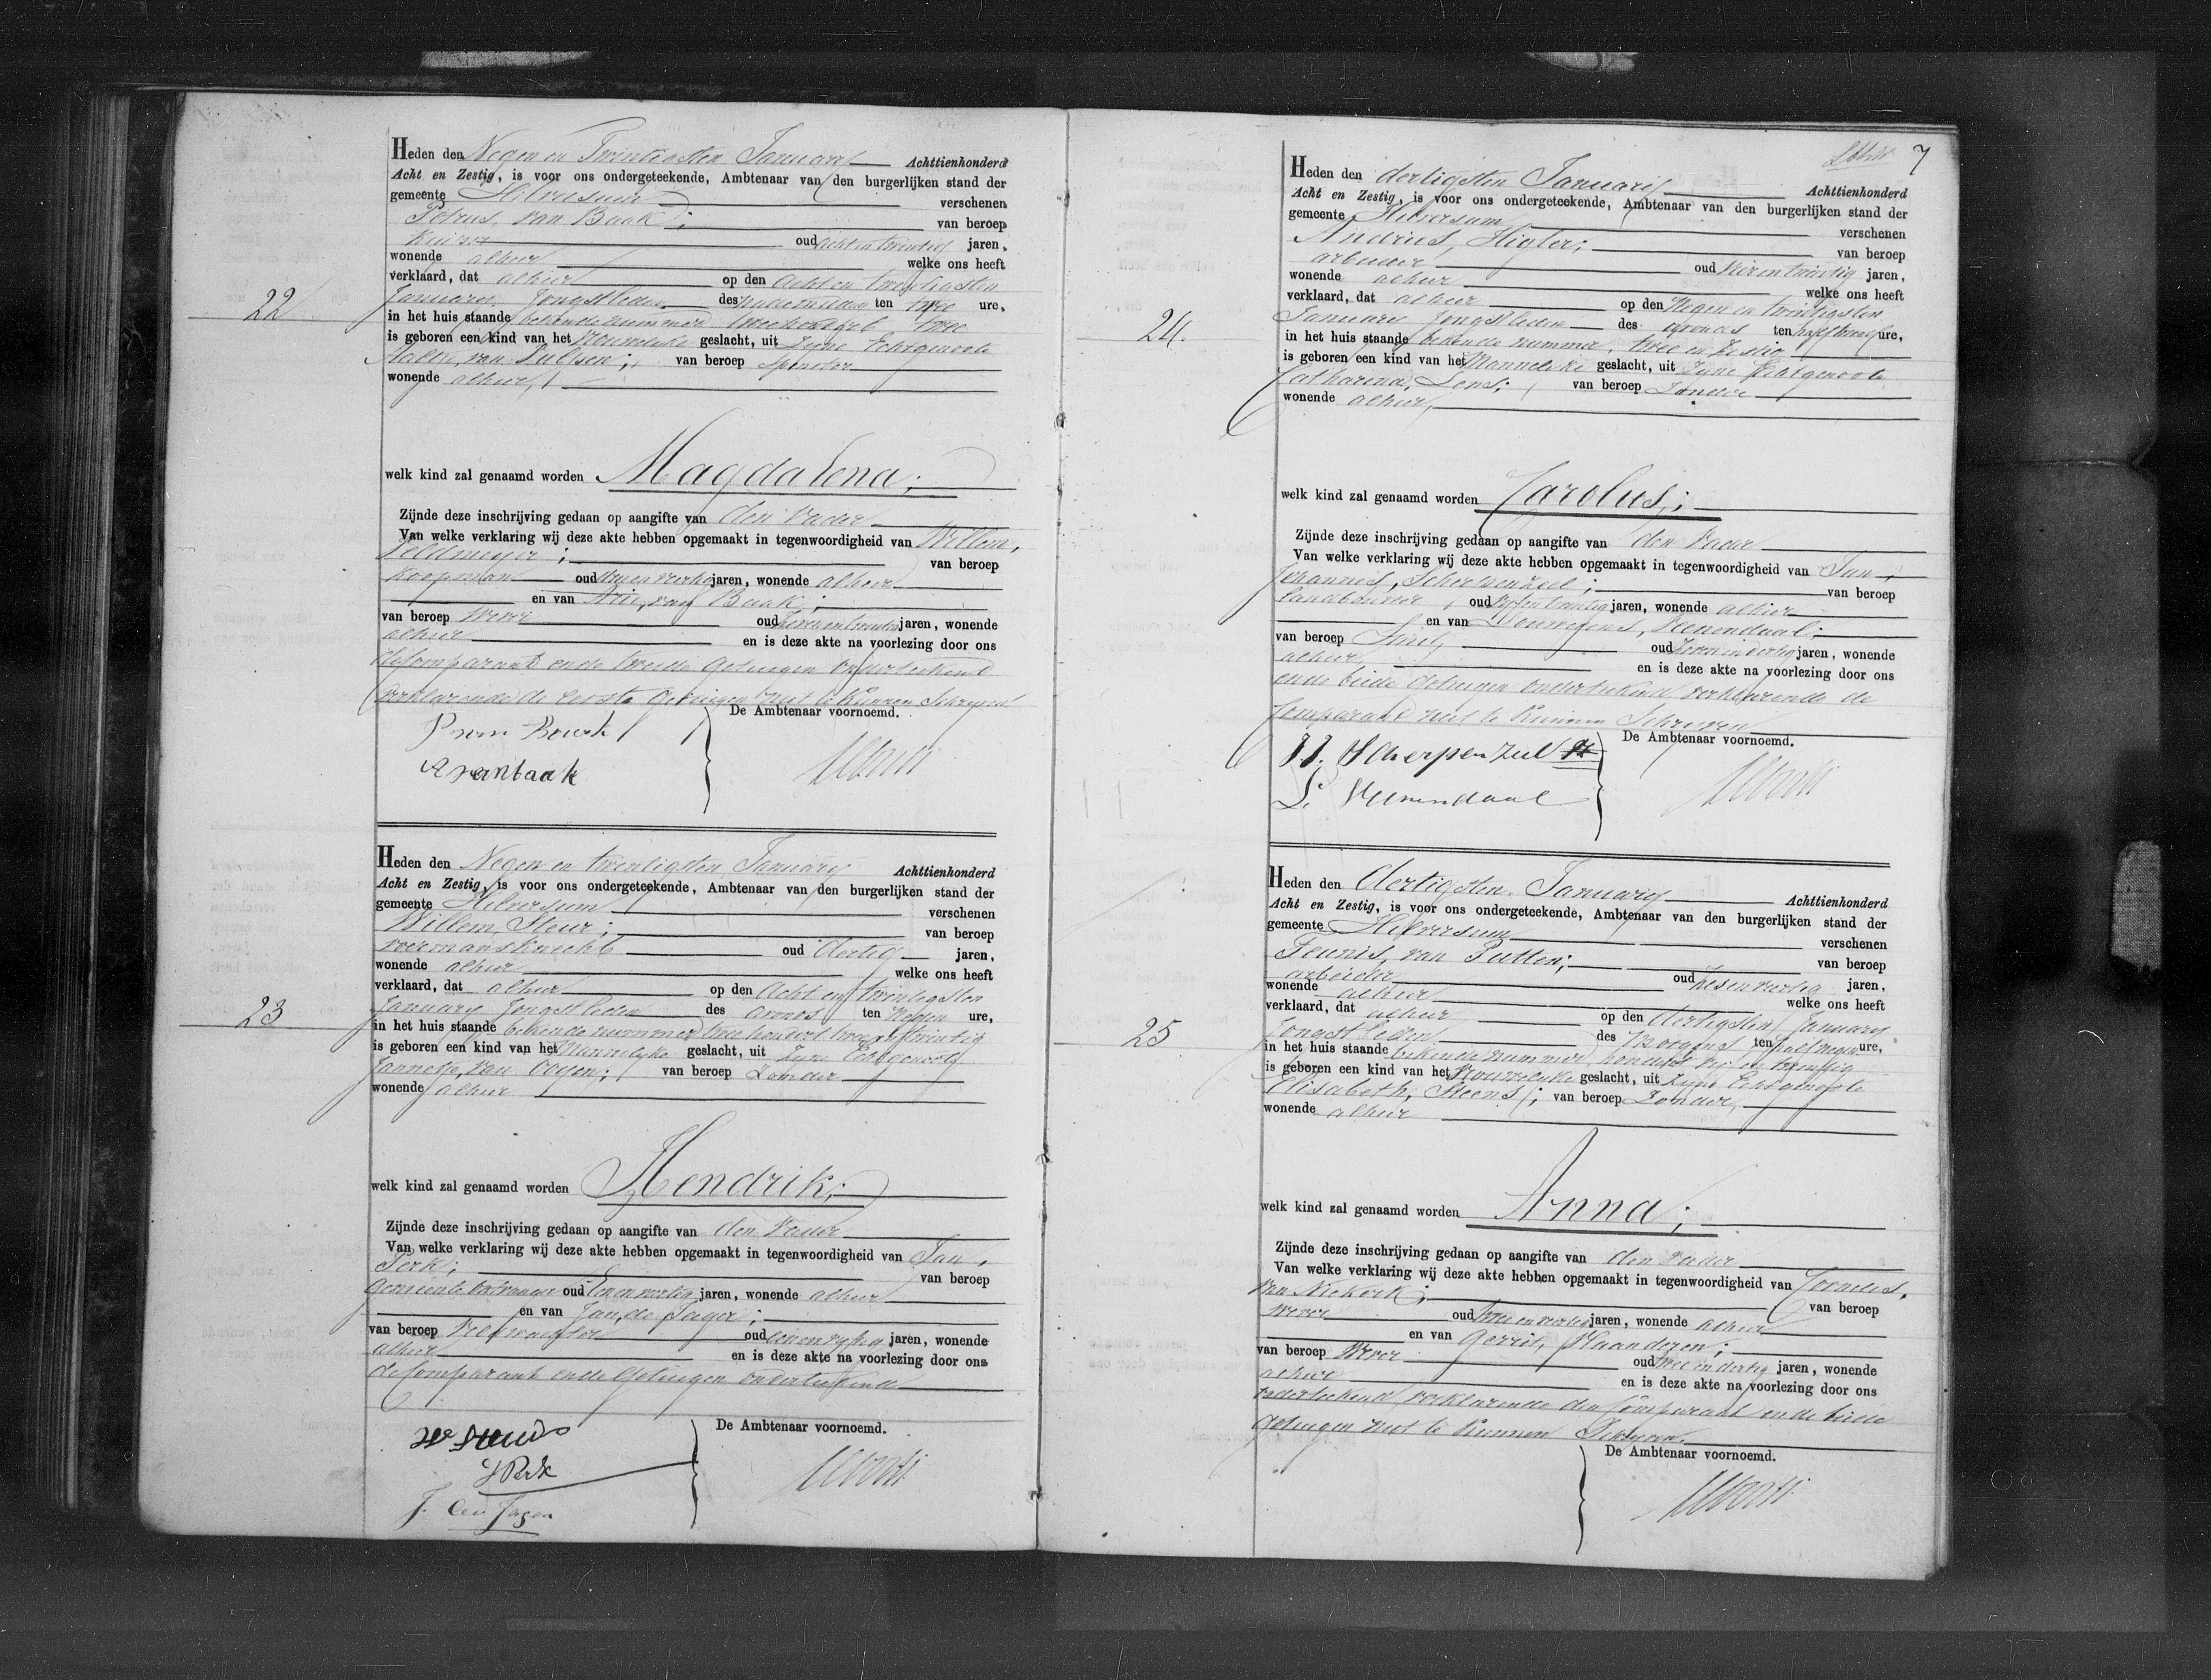 Heden den Negen en Twintigsten Januarij Achttienhonderd
Acht en Zestig, is voor ons ondergeteekende, Ambtenaar van den burgerlijken stand der
gemeente Hilversum verschenen
Petrus, van Baak; van beroep
oud acht en twintig jaren,
wonende alhier welke ons heeft
verklaard, dat alhier op den acht en twintigsten
Januarij Jongstleden des namiddags ten twee ure,
22
in het huis staande bekende nummer twee
is geboren een kind van het Vrouwelijke geslacht, uit Zijne Echtgenoote
van beroep Spinster
wonende alhier,
welk kind zal genaamd worden Magdalena;
Zijnde deze inschrijving gedaan op aangifte van den Vader
Van welke verklaring wij deze akte hebben opgemaakt in tegenwoordigheid van Willem,
Veldmeyer; van beroep
Koopman oud jaren, wonende alhier
en van Arie, van Baak;
van beroep Wever oud jaren, wonende
alhier en is deze akte na voorlezing door ons
de Comparant en de tweede Getuigen Onderteekend
Verklarende de eerste Getuigen Niet te Kunnen Schrijven
De Ambtenaar voornoemd.
P van Baak
A van baak
Heden den Negen en twintigsten, Januarij Achttienhonderd
Acht en Zestig, is voor ons ondergeteekende, Ambtenaar van den burgerlijken stand der
gemeente Hilversum verschenen
Willem, Steur; van beroep
voermansknecht oud dertig jaren,
wonende alhier welke ons heeft
verklaard, dat alhier op den Acht en twintigsten
Januarij Jongstleden des avonds ten Negen ure,
23
in het huis staande bekende nummer twee hondert twee en twintig
is geboren een kind van het Mannelijke geslacht, uit Zijne Echtgenoote
Jannetje, van Ooyen; van beroep Zonder
wonende alhier
welk kind zal genaamd worden Hendrik;
Zijnde deze inschrijving gedaan op aangifte van den Vader
Van welke verklaring wij deze akte hebben opgemaakt in tegenwoordigheid van Jan,
Perk; van beroep
Gemeente Ontvanger oud Een en veertig jaren, wonende alhier
en van Jan, de Jager;
van beroep Veldwagter oud jaren, wonende
alhier en is deze akte na voorlezing door ons
de Comparant en de Getuigen Onderteekend
De Ambtenaar voornoemd.
J Perk
J. den Jager
7
Heden den dertigsten Januarij Achttienhonderd
Acht en Zestig, is voor ons ondergeteekende, Ambtenaar van den burgerlijken stand der
gemeente Hilversum verschenen
Andries, Higler; van beroep
arbeider oud Vier en twintig jaren,
wonende alhier welke ons heeft
verklaard, dat alhier op den Negen en twintigsten
Januarij Jongstleden des avonds ten half twaalf ure,
24.
in het huis staande bekende nummer, twee en Zestig
is geboren een kind van het Mannelijke geslacht, uit Zijne Echtgenoote
Catharina, Lens; van beroep Zonder
wonende alhier,
welk kind zal genaamd worden Carolus;
Zijnde deze inschrijving gedaan op aangifte van den Vader
Van welke verklaring wij deze akte hebben opgemaakt in tegenwoordigheid van Jan,
Johannes, Scherpenzeel; van beroep
landbouwer oud Vyf en twintig jaren, wonende alhier
en van Louwerens, Veenendaal;
van beroep Smit, oud jaren, wonende
alhier en is deze akte na voorlezing door ons
en de beide Getuigen Onderteekend, verklarende de
Comparant niet te Kunnen Schrijven
De Ambtenaar voornoemd.
J. J. Scherpenzeel
L. Veenendaal
Heden den dertigsten, Januarij Achttienhonderd
Acht en Zestig, is voor ons ondergeteekende, Ambtenaar van den burgerlijken stand der
gemeente Hilversum verschenen
Teunis, van Putten; van beroep
arbeider oud Zes en veertig jaren,
wonende alhier welke ons heeft
verklaard, dat alhier op den dertigsten Januarij
Jongstleden des Morgens ten half negen ure,
25
in het huis staande bekende nummer, hondert en twintig
is geboren een kind van het Vrouwelijke geslacht, uit Zijne Echtgenoote
Elisabeth, Steens; van beroep Zonder,
wonende alhier
welk kind zal genaamd worden Anna;
Zijnde deze inschrijving gedaan op aangifte van den Vader
Van welke verklaring wij deze akte hebben opgemaakt in tegenwoordigheid van Cornelis,
van Niekerk; van beroep
Wever oud twee en veertig jaren, wonende alhier
en van Gerrit, Vlaanderen;
van beroep Wever oud twee en dertig jaren, wonende
alhier en is deze akte na voorlezing door ons
onderteekend, verklarende den Comparant en de beide
Getuigen niet te Kunnen Schrijven.
De Ambtenaar voornoemd.